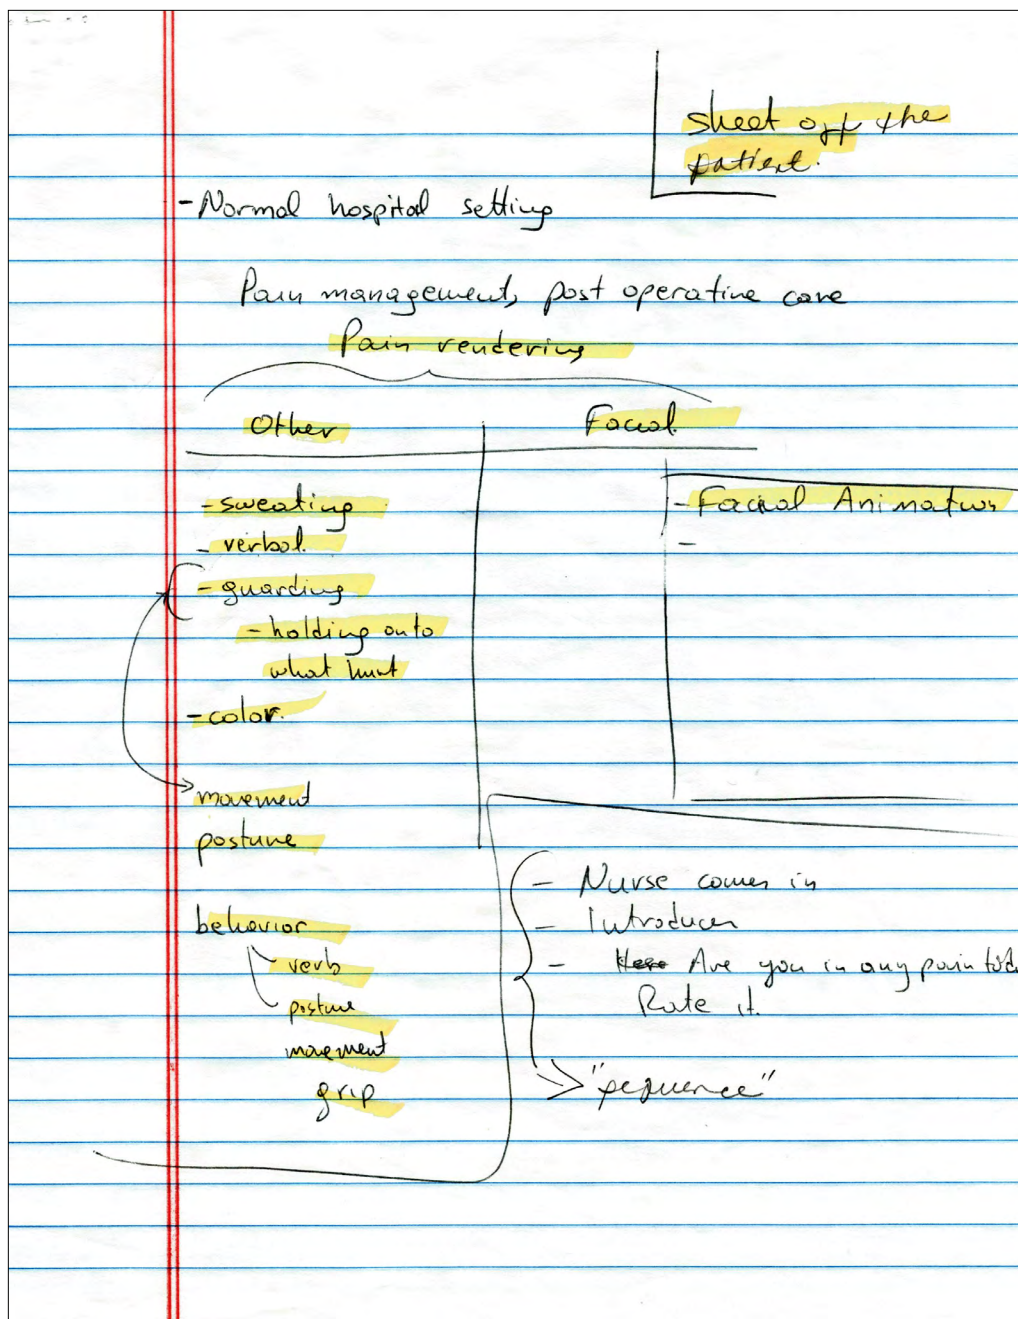 sheet off the
patient.
- Normal hospital setting
Pain management, post operative care
Pain rendering
Other
Facial
- sweating
- verbal.
- guarding
- holding onto
what hurt
- color.
movement
posture
behavior
verb
posture
movement
grip
- Facial Animations
-
- Nurse comes in
- Introduces
- Are you in any pain tod
Rate it.
"sequence"